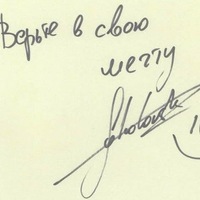 Верьте в свою
мечту